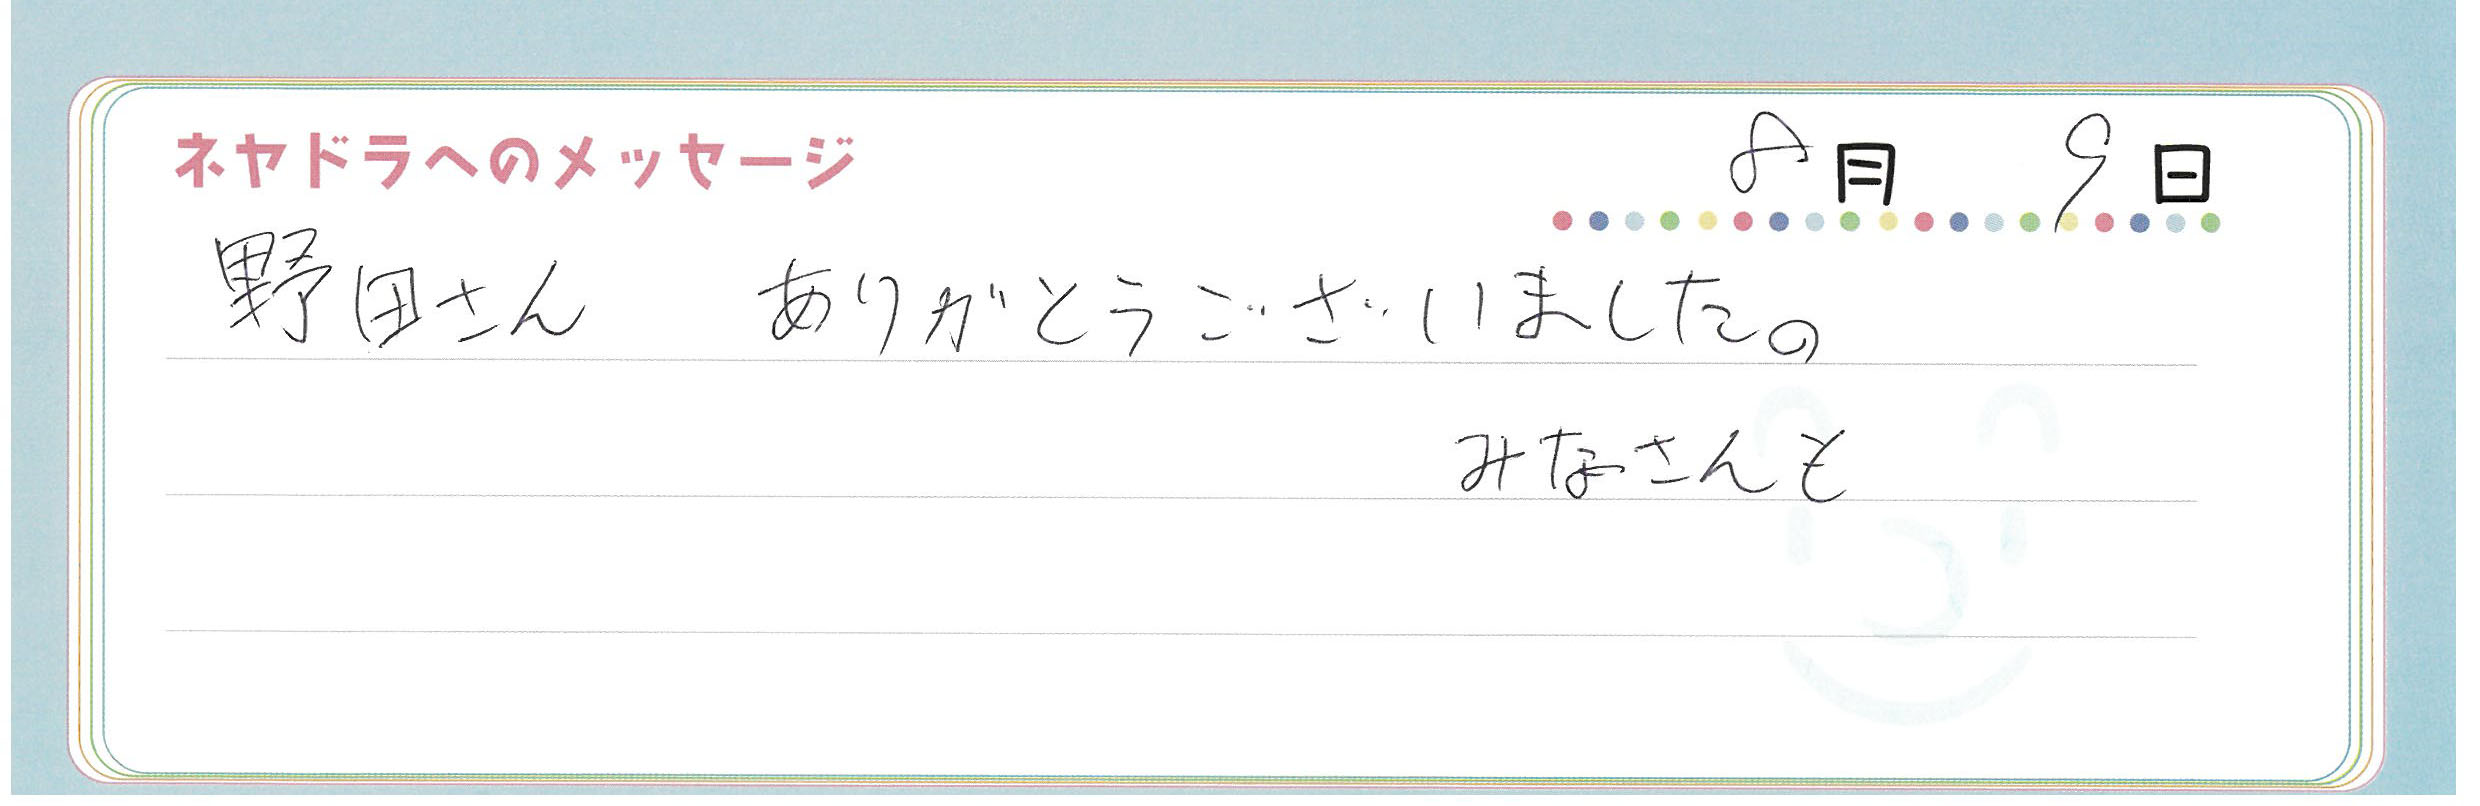 ネヤドラへのメッセージ 8月 9日
野田さん ありがとうございました。
みなさんも